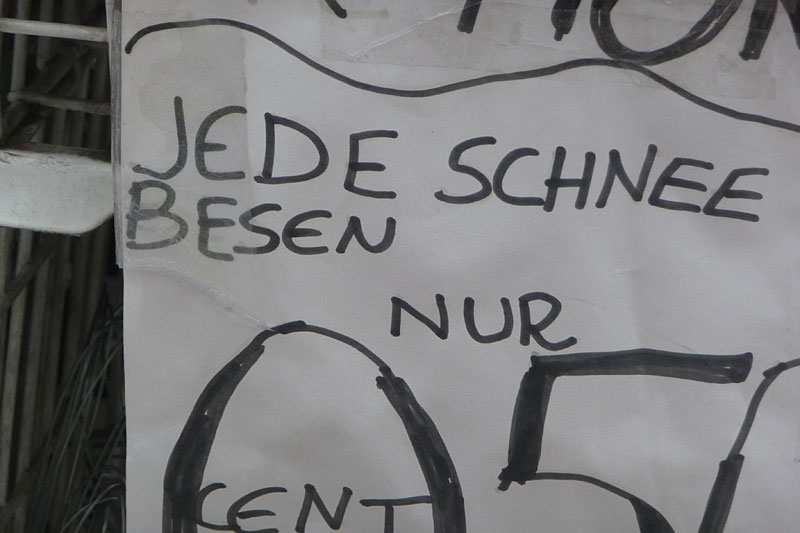 JEDE SCHNEE
BESEN
NUR
05
CENT